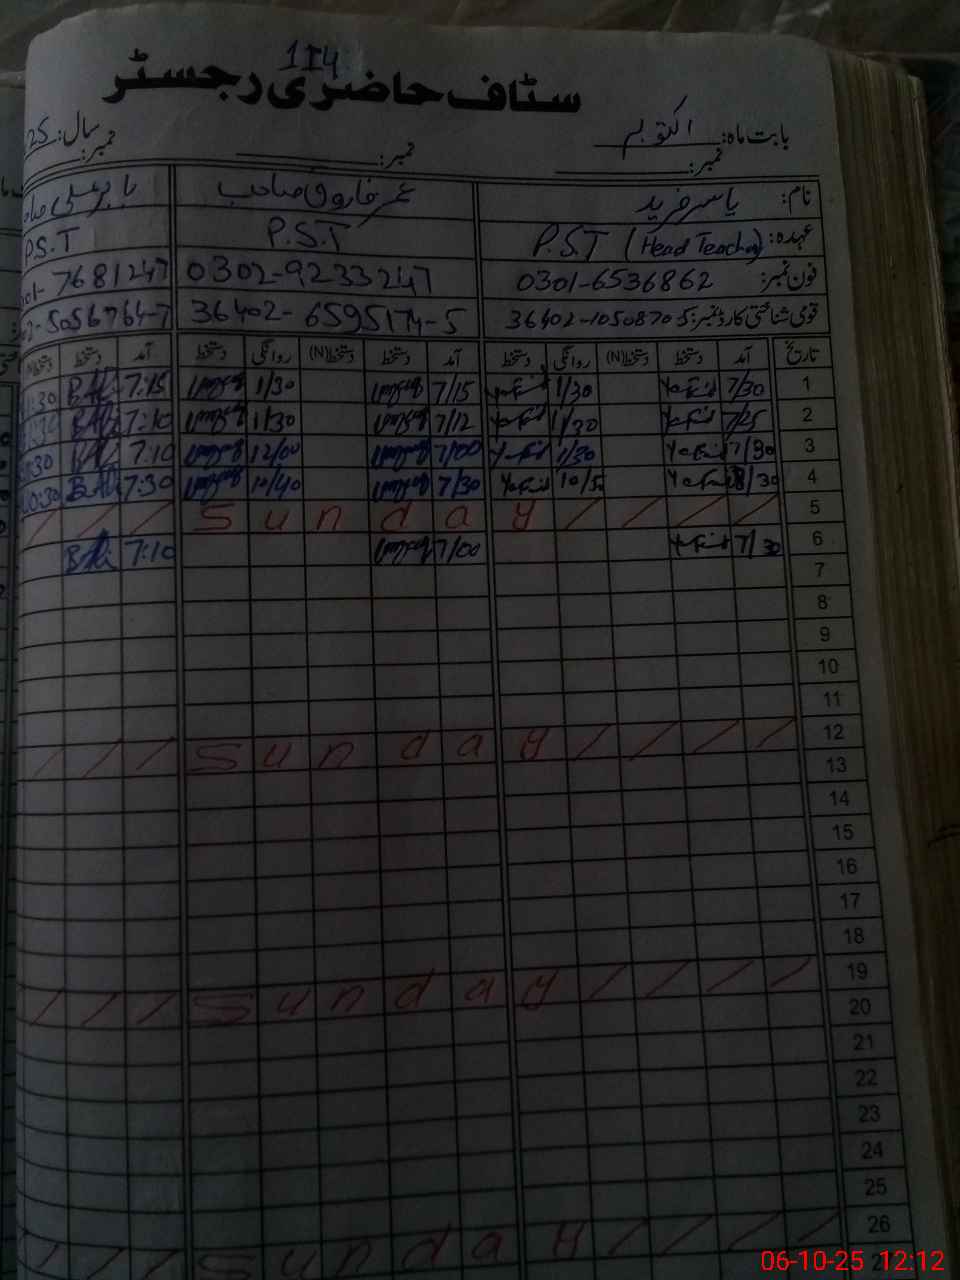 1I4
سٹاف حاضری رجسٹر
بابت ماہ: اکتوبر سال: 25
نمبر: نمبر: نمبر:
نام: یاسر فرید عمر فاروق صاحب
عہدہ: P.S.T (Head Teacher) P.S.T P.S.T
فون نمبر: 0301-6536862 0302-9233247 7681247
قومی شناختی کارڈ نمبر: 36402-1050870-5 36402-6595174-5 5056764-7
تاریخ آمد دستخط دستخط(N) روانگی دستخط آمد دستخط دستخط(N) روانگی دستخط آمد دستخط
1 7/30 1/30 7/15 1/30 7:15
2 7/25 1/30 7/12 1/30 7:10
3 7/30 1/30 7/00 12/00 7:10
4 8/30 10/5 7/30 10/40 7:30
5 Sunday
6 7/30 7/00 7:10
7
8
9
10
11
12 Sunday
13
14
15
16
17
18
19 Sunday
20
21
22
23
24
25
26 Sunday
06-10-25 12:12